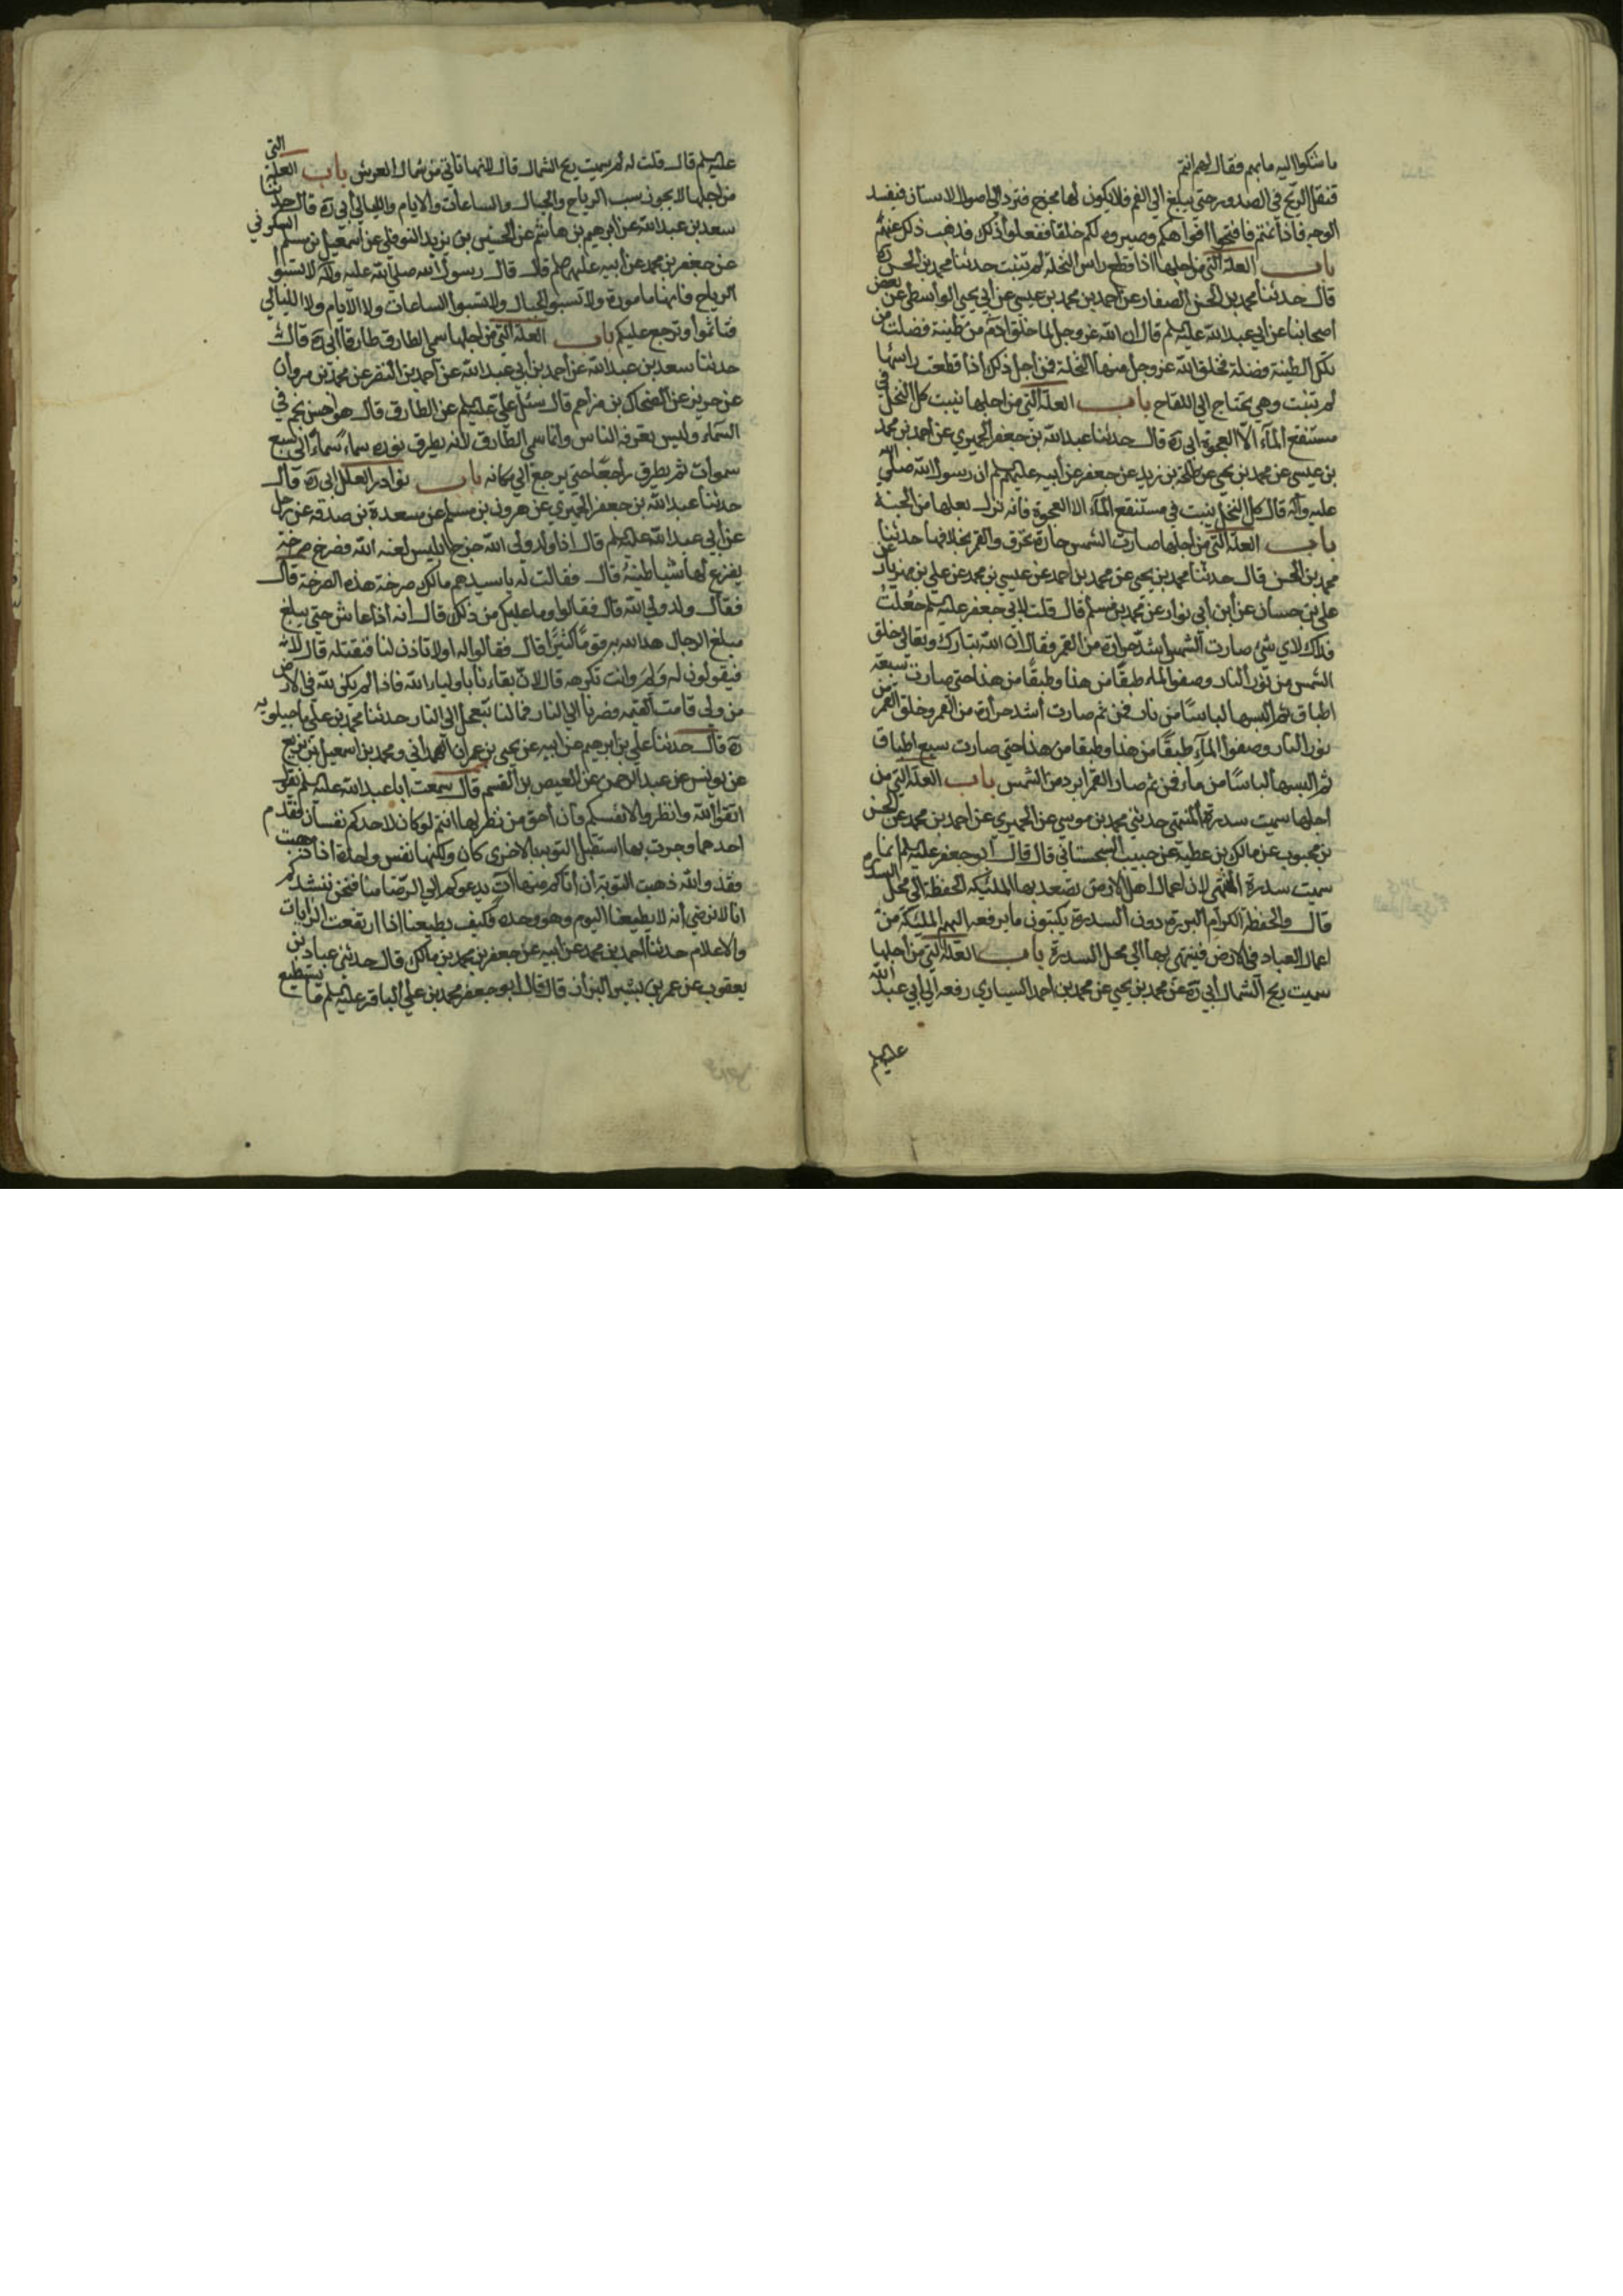 ما شكوا اليه ما بهم فقال لهم انتم
فتقل الريح في الصدور حتى يبلغ الي الفم فلا يكون لها مخرج فترد الي اصول الاسنان فيفسد
الوجه فاذا نمتم فافتحوا افواهكم وصيروه لكم خلقا ففعلوا ذلك فذهب ذلك عنهم
باب العلة التي من اجلها اذا قطع راس النخلة لم تنبت حدثنا محمد بن الحسن ره
قال حدثنا محمد بن الحسن الصفار عن احمد بن محمد بن عيسى عن ابي يحيى الواسطي عن بعض
اصحابنا عن ابي عبد الله عليه السلم قال ان الله عز وجل لما خلق ادم من طينة فضلت من
تلك الطينة فضلة فخلق الله عز وجل منها النخلة فمن اجل ذلك اذا قطعت راسها
لم تنبت وهي تحتاج الي اللقاح باب العلة التي من اجلها ينبت كل النخل في
مستنقع المآء الا العجوة ابي ره قال حدثنا عبد الله بن جعفر الحميري عن احمد بن محمد
بن عيسى عن محمد بن يحيى عن طلحة بن زيد عن جعفر عن ابيه عليهم السلم ان رسول الله صلى الله
عليه وآله قال كل النخل ينبت في مستنقع المآء الا العجوة فانه نزل بعلها من الجنة
باب العلة التي من اجلها صارت الشمس حارة تحرق والقمر بخلافها حدثنا
محمد بن الحسن قال حدثنا محمد بن يحيى عن محمد بن احمد عن عيسى بن محمد عن علي بن مهزيار عن
علي بن حسان عن ابن ابي نوار عن محمد بن مسلم قال قلت لابي جعفر عليه السلم جعلت
فداك لاي شئ صارت الشمس اشد حرارة من القمر فقال ان الله تبارك وتعالى خلق
الشمس من نور النار وصفو الماء طبقًا من هذا وطبقًا من هذا حتى صارت سبعة
اطباق ثم البسها لباسًا من نار فمن ثم صارت اشد حرارة من القمر وخلق القمر من
نور النار وصفو المآء طبقًا من هذا وطبقا من هذا حتى صارت سبع اطباق
ثم البسها لباسًا من ماء فمن ثم صار القمر ابرد من الشمس باب العلة التي من
اجلها سميت سدرة المنتهى حدثني محمد بن موسى عن الحميري عن احمد بن محمد عن الحسن
بن محبوب عن مالك بن عطية عن حبيب السجستاني قال قال ابو جعفر عليه السلم انما
سميت سدرة المنتهى لان اعمال اهل الارض تصعد بها الملئيكه الحفظة الي محل السدره
قال والحفظة الكرام البررة دون السدرة يكتبون ما يرفعه اليهم المليئكة من
اعمال العباد في الارض فينتهي بها الي محل السدرة باب العلة التي من اجلها
سميت ريح الشمال ابي ره عن محمد بن يحيى عن محمد بن احمد السياري رفعه الي ابي عبد الله
عليه السلم
عليه السلم قال قلت له لم سميت ريح الشمال قال لانها تاتي من شمال العرش باب العلة التي
من اجلها لا يجوز سب الرياح والجبال والساعات والايام والليالي ابي ره قال حدثنا
سعد بن عبد الله عن ابرهيم بن هاشم عن الحسين بن يزيد النوفلي عن اسمعيل بن مسلم السكوني
عن جعفر بن محمد عن ابيه عليهم السلم قال قال رسول الله صلى الله عليه وآله لا تسبوا
الرياح فانها مامورة ولا تسبوا الجبال ولا تسبوا الساعات ولا الايام ولا الليالي
فتاثموا وترجع عليكم باب العلة التي من اجلها سمي الطارق طارقا ابي ره قال
حدثنا سعد بن عبد الله عن احمد بن ابي عبد الله عن احمد بن النضر عن محمد بن مروان
عن حريز عن الضحاك بن مزاحم قال سئل علي عليه السلم عن الطارق قال هو احسن نجم في
السماء وليس يعرفه الناس وانما سمي الطارق لانه يطرق نوره سماءً سماءً الى سبع
سموات ثم يطرق راجعًا حتى يرجع الي مكانه باب نوادر العلل ابي ره قال
حدثنا عبد الله بن جعفر الحميري عن هرون بن مسلم عن مسعدة بن صدقه عن رجل
عن ابي عبد الله عليه السلم قال اذا ولد ولي الله خرج ابليس لعنه الله فصرخ صرخة
يفزع لها شياطينه قال فقالت له يا سيدهم مالك صرخت هذه الصرخة قال
فقال ولد ولي الله قال فقالوا وما عليك من ذلك قال انه اذا عاش حتى يبلغ
مبلغ الرجال هدا الله به قومًا كثيرًا قال فقالوا له اولا تاذن لنا فنقتله قال لا
فيقولون له ولم وانت تكرهه قال لان بقاءنا باولياء الله فاذا لم يكن لله في الارض
من ولي قامت القيمه وفصرنا الي النار فما لنا نتعجل الي النار حدثنا محمد بن علي ماجيلويه
ره قال حدثنا علي بن ابرهيم عن ابيه عن يحيى بن عمران الهمداني ومحمد بن اسمعيل بن بزيع
عن يونس عن عبد الرحمن عن العيص بن القسم قال سمعت ابا عبد الله عليه السلم يقول
اتقوا الله وانظروا لانفسكم فان احق من نظر لها انتم لو كان لاحدكم نفسان فقدم
احدهما وجرب بها استقبل التوبه بالاخرى كان ولكنها نفس واحدة اذا ذهبت
فقد والله ذهبت التوبة ان اتاكم منا آت يدعوكم الي الرضا منا فنحن ننشدكم
انا لا نرضى انه لا يطيعنا اليوم وهو وحده فكيف يطيعنا اذا ارتفعت الرايات
والاعلام حدثنا احمد بن محمد عن ابيه عن جعفر بن محمد بن مالك قال حدثني عباد بن
يعقوب عن عمر بن بشير البزاز قال قال ابو جعفر محمد بن علي الباقر عليه السلم ما يستطيع